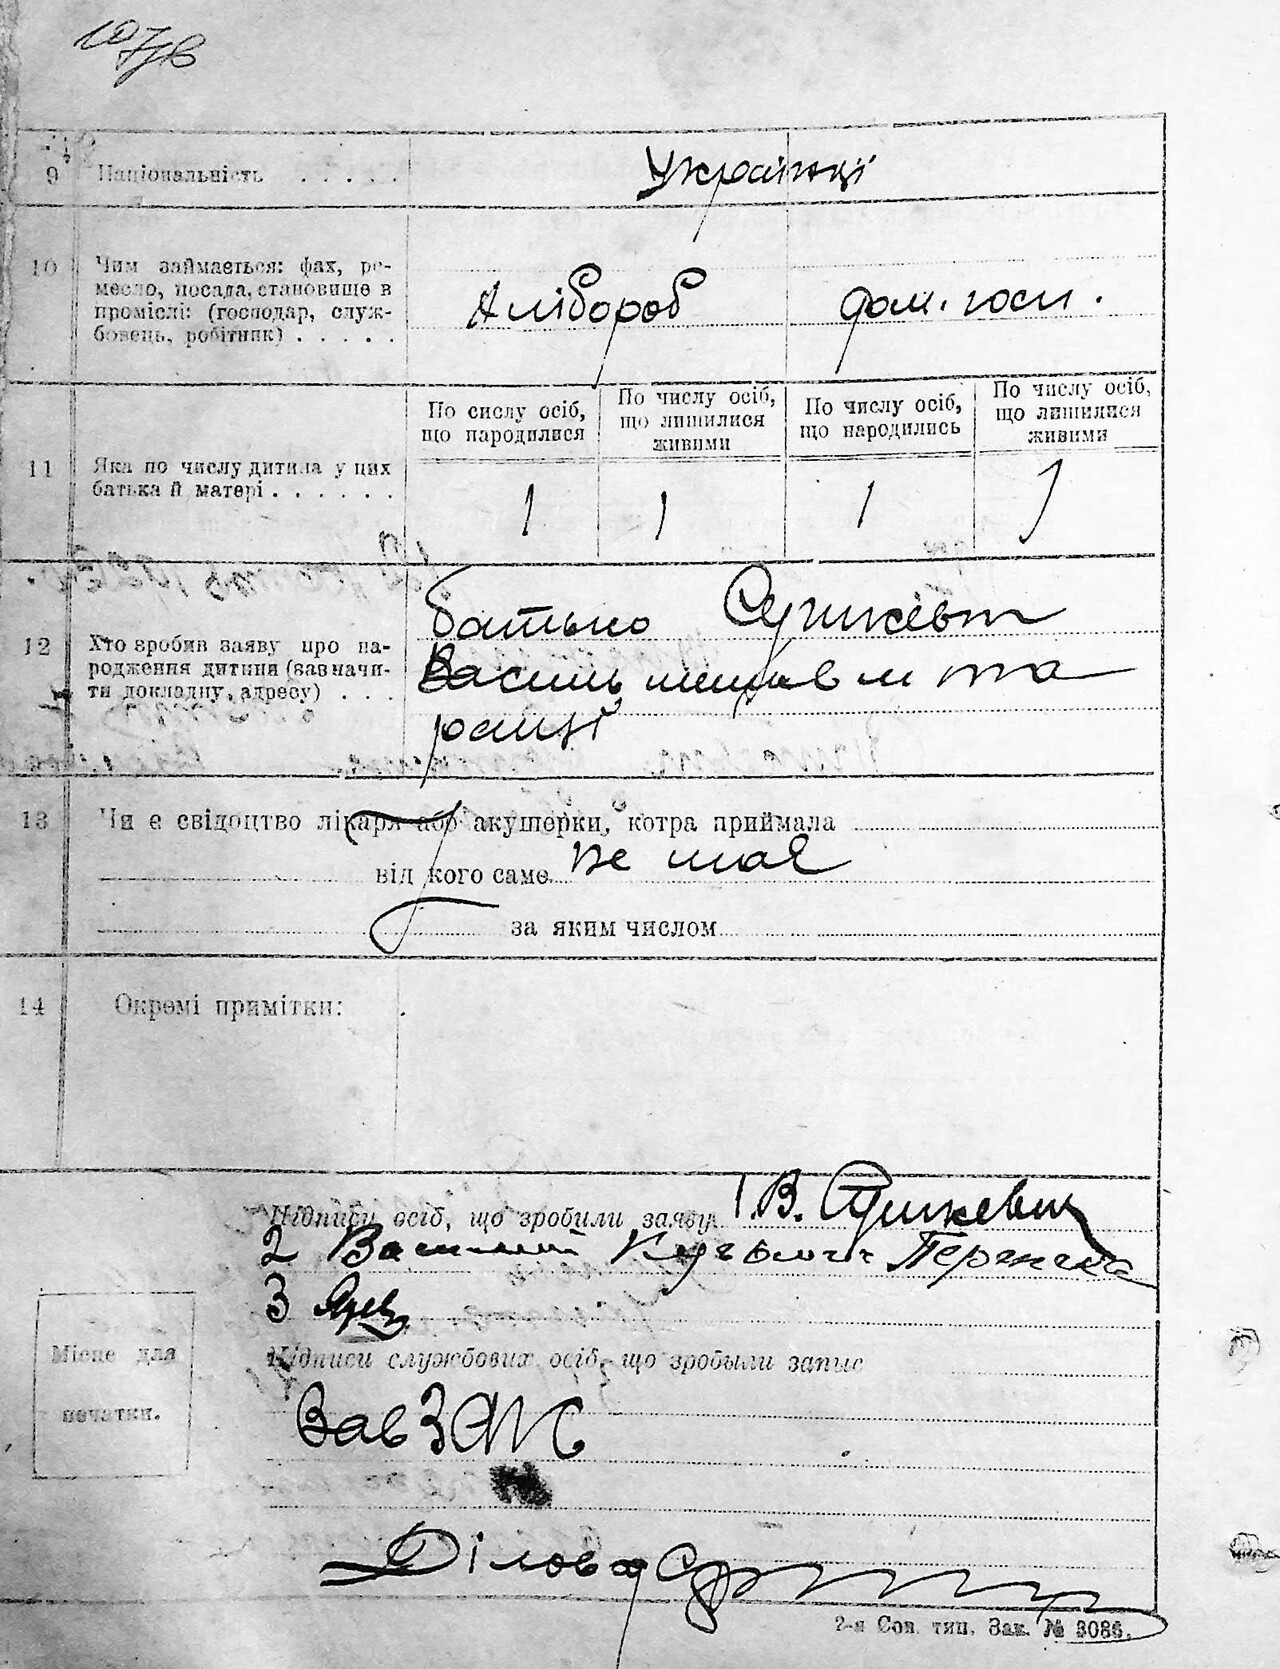 9 Національність . . . . .
Українці
10 Чим займається: фах, ре-
месло, посада, становище в
проміслі: (господар, служ-
бовець, робітник) . . . . .
Хлібороб дом. госп.
11 Яка по числу дитина у цих
батька й матері . . . . . .
По числу осіб, що народилися
По числу осіб, що лишилися живими
По числу осіб, що народились
По числу осіб, що лишилися живими
1 1 1 1
12 Хто зробив заяву про на-
родження дитини (зазначи-
ти докладну, адресу) . . .
батько Сушкевич
Василь та
13 Чи є свідоцтво лікаря або акушерки, котра приймала
від кого саме не має
за яким числом
14 Окремі примітки:
Підписи осіб, що зробили заяву 1. В. Сушкевич
2 Василий
3
Місце для
печатки.
Підписи службових осіб, що зробыли запис
Зав ЗАГС
Діловод
2-я Сов. тип. Зак. № 3086.